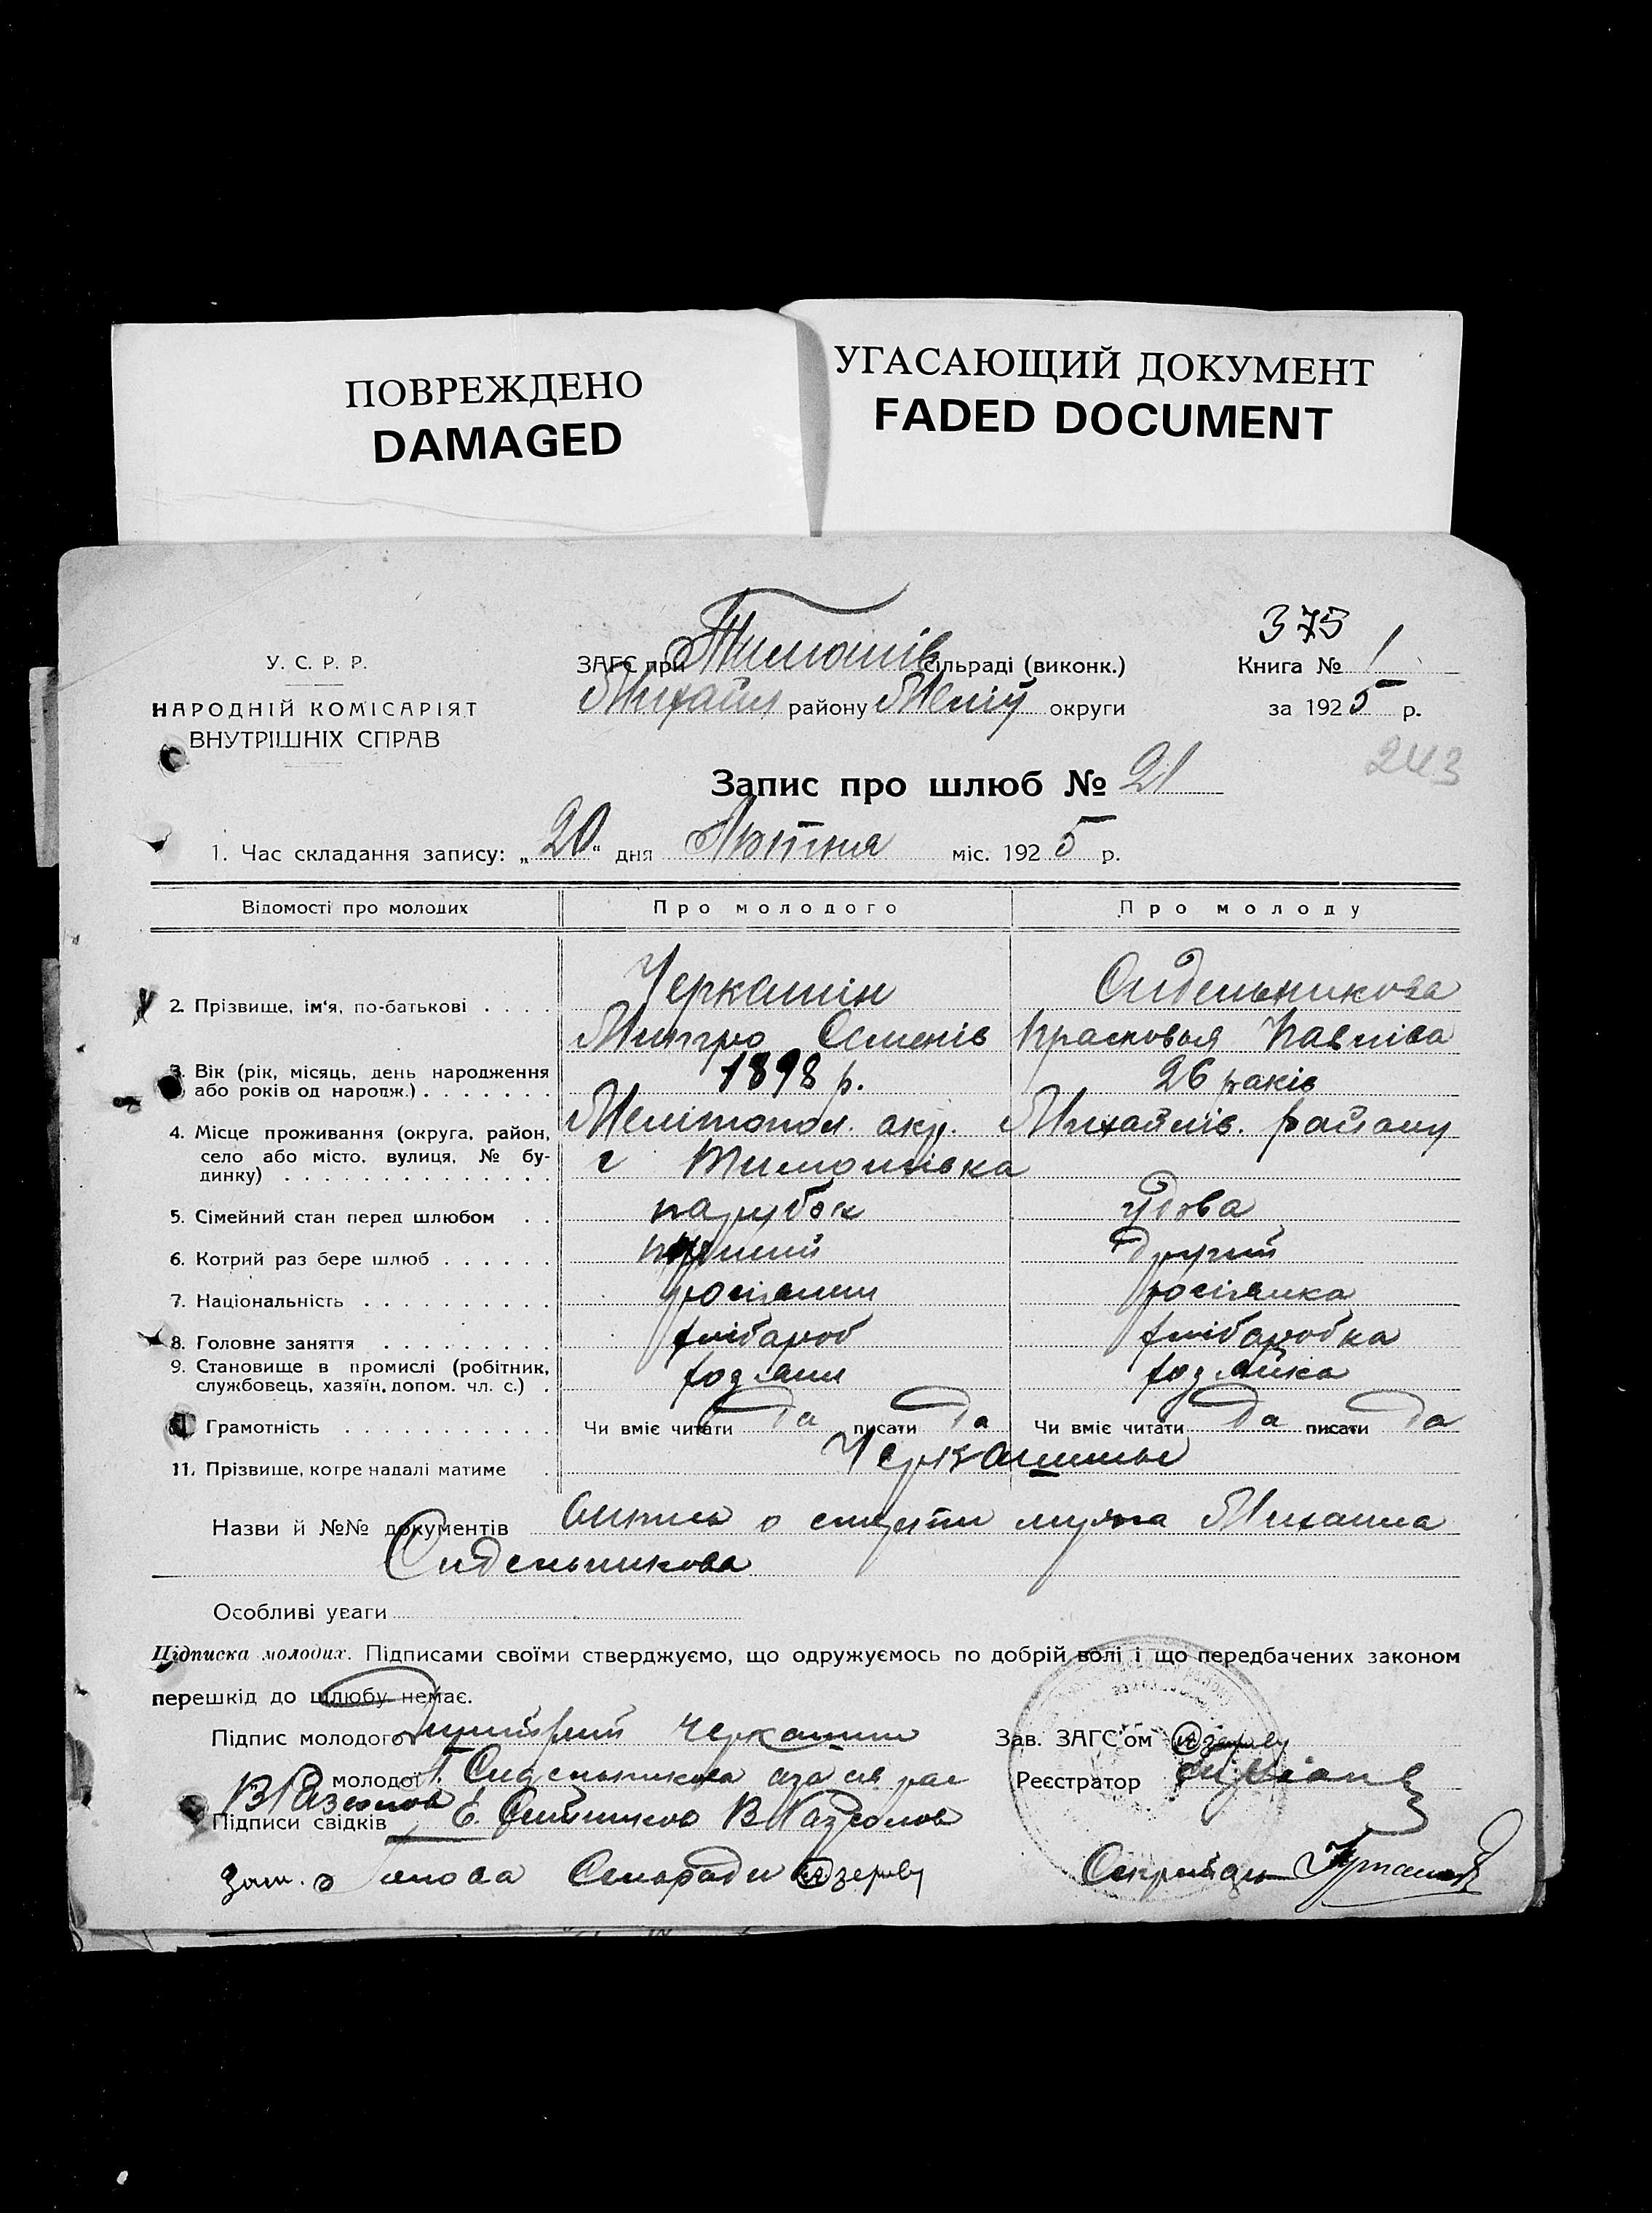 ПОВРЕЖДЕНО
DAMAGED
УГАСАЮЩИЙ ДОКУМЕНТ
FADED DOCUMENT
375
У. С. Р. Р.
НАРОДНІЙ КОМІСАРІЯТ
ВНУТРІШНІХ СПРАВ
ЗАГС при Тимошів сільраді (виконк.)
Михайл району Меліт округи
Книга № 1
за 1925 р.
243
Запис про шлюб № 21
1. Час складання запису: „20" дня Лютня міс. 1925 р.
Відомості про молодих Про молодого Про молоду
2. Прізвище, ім'я, по-батькові . . . . Черкашін Сидельникова
Митро Семенів Прасковья Павліва
3. Вік (рік, місяць, день народження
або років од народж.) . . . . . . . 1898 р. 26 років
4. Місце проживання (округа, район,
село або місто, вулиця, № бу-
динку) . . . . . . . . . . . . . .
Мелітопол. окр. Михайлів. району
с Тимошівка
5. Сімейний стан перед шлюбом . . парубок удова
6. Котрий раз бере шлюб . . . . . . перший другий
7. Національність . . . . . . . . . . росіянин росіянка
8. Головне заняття . . . . . . . . . хлібароб хлібаробка
9. Становище в промислі (робітник,
службовець, хазяїн, допом. чл. с.) .
хозяин хозяйка
Грамотність . . . . . . . . . . . Чи вміє читати да писати да Чи вміє читати да писати да
11. Прізвище, котре надалі матиме . Черкашины
Назви й №№ документів Выпись о смерти мужа Михаила
Сидельникова
Особливі уваги
Підписка молодих. Підписами своїми стверджуємо, що одружуємось по добрій волі і що передбачених законом
перешкід до шлюбу немає.
Підпис молодого Дмитрий Черкашин
Зав. ЗАГС'ом
молодої Сидельникова
Реєстратор
Підписи свідків
Голова Сільради
Секритарь